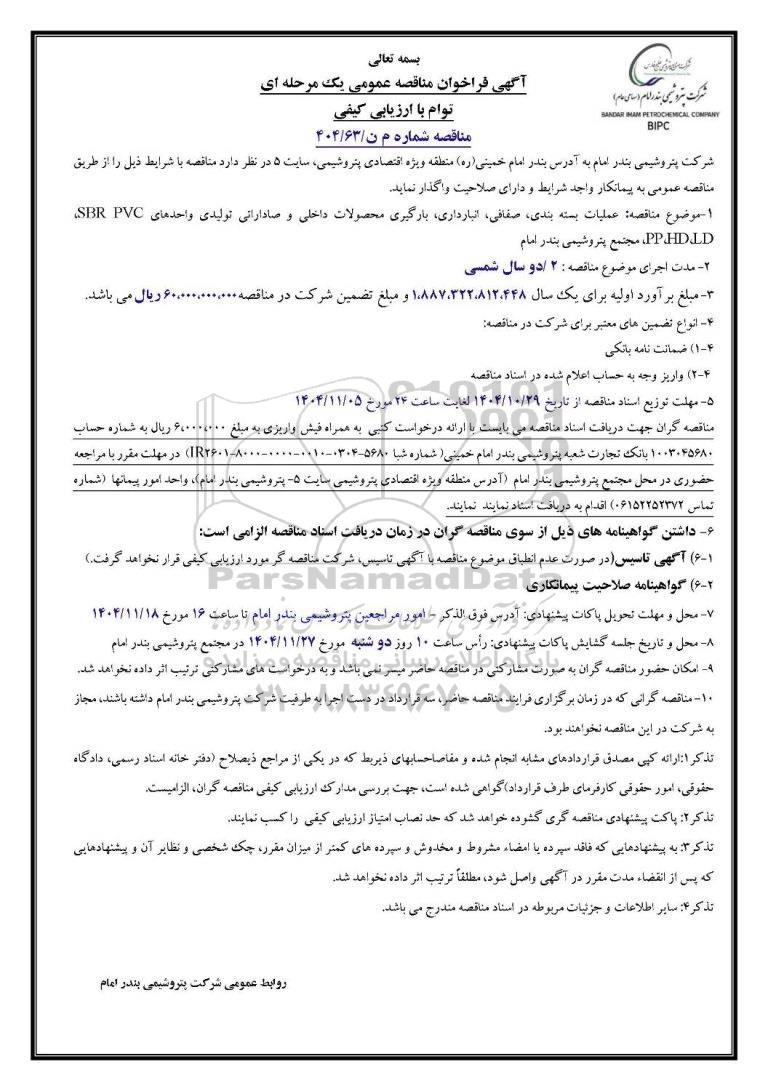 بسمه تعالی
آگهی فراخوان مناقصه عمومی یک مرحله ای
توام با ارزیابی کیفی
مناقصه شماره م ن/۴۰۴/۶۳
شرکت پتروشیمی بندرامام (سهامی عام)
BANDAR IMAM PETROCHEMICAL COMPANY
BIPC
شرکت پتروشیمی بندر امام به آدرس بندر امام خمینی(ره) منطقه ویژه اقتصادی پتروشیمی، سایت ۵ در نظر دارد مناقصه با شرایط ذیل را از طریق
مناقصه عمومی به پیمانکار واجد شرایط و دارای صلاحیت واگذار نماید.
۱-موضوع مناقصه: عملیات بسته بندی، صفافی، انبارداری، بارگیری محصولات داخلی و صاداراتی تولیدی واحدهای SBR PVC،
PP،HD،LD، مجتمع پتروشیمی بندر امام
۲- مدت اجرای موضوع مناقصه : ۲ /دو سال شمسی
۳-مبلغ برآورد اولیه برای یک سال ۱،۸۸۷،۳۲۲،۸۱۲،۴۴۸ و مبلغ تضمین شرکت در مناقصه ۶۰،۰۰۰،۰۰۰،۰۰۰ ریال می باشد.
۴- انواع تضمین های معتبر برای شرکت در مناقصه:
۴-۱) ضمانت نامه بانکی
۴-۲) واریز وجه به حساب اعلام شده در اسناد مناقصه
۵- مهلت توزیع اسناد مناقصه از تاریخ ۱۴۰۴/۱۰/۲۹ لغایت ساعت ۲۴ مورخ ۱۴۰۴/۱۱/۰۵
مناقصه گران جهت دریافت اسناد مناقصه می بایست با ارائه درخواست کتبی به همراه فیش واریزی به مبلغ ۶،۰۰۰،۰۰۰ ریال به شماره حساب
۱۰۰۳۰۴۵۶۸۰ بانک تجارت شعبه پتروشیمی بندر امام خمینی( شماره شبا IR۲۶۰۱-۸۰۰۰-۰۰۰۰-۰۰۱۰-۰۳۰۴-۵۶۸۰) در مهلت مقرر با مراجعه
حضوری در محل مجتمع پتروشیمی بندر امام (آدرس منطقه ویژه اقتصادی پتروشیمی سایت ۵- پتروشیمی بندر امام)، واحد امور پیمانها (شماره
تماس ۰۶۱۵۲۲۵۲۳۷۲) اقدام به دریافت اسناد نمایند نمایند.
۶- داشتن گواهینامه های ذیل از سوی مناقصه گران در زمان دریافت اسناد مناقصه الزامی است:
۶-۱) آگهی تاسیس(در صورت عدم انطباق موضوع مناقصه با آگهی تاسیس، شرکت مناقصه گر مورد ارزیابی کیفی قرار نخواهد گرفت.)
۶-۲) گواهینامه صلاحیت پیمانکاری
ParsNamadData
۷- محل و مهلت تحویل پاکات پیشنهادی: آدرس فوق الذکر - امور مراجعین پتروشیمی بندر امام تا ساعت ۱۶ مورخ ۱۴۰۴/۱۱/۱۸
۸- محل و تاریخ جلسه گشایش پاکات پیشنهادی: رأس ساعت ۱۰ روز دو شنبه مورخ ۱۴۰۴/۱۱/۲۷ در مجتمع پتروشیمی بندر امام
۹- امکان حضور مناقصه گران به صورت مشارکتی در مناقصه حاضر میسر نمی باشد و به درخواست های مشارکتی ترتیب اثر داده نخواهد شد.
۱۰-مناقصه گرانی که در زمان برگزاری فرایند مناقصه حاضر، سه قرارداد در دست اجرا به ظرفیت شرکت پتروشیمی بندر امام داشته باشند، مجاز
به شرکت در این مناقصه نخواهند بود.
تذکر۱:ارائه کپی مصدق قراردادهای مشابه انجام شده و مفاصاحسابهای ذیربط که در یکی از مراجع ذیصلاح (دفتر خانه اسناد رسمی، دادگاه
حقوقی، امور حقوقی کارفرمای طرف قرارداد)گواهی شده است، جهت بررسی مدارک ارزیابی کیفی مناقصه گران، الزامیست.
تذکر۲: پاکت پیشنهادی مناقصه گری گشوده خواهد شد که حد نصاب امتیاز ارزیابی کیفی را کسب نمایند.
تذکر۳: به پیشنهادهایی که فاقد سپرده یا امضاء مشروط و مخدوش و سپرده های کمتر از میزان مقرر، چک شخصی و نظایر آن و پیشنهادهایی
که پس از انقضاء مدت مقرر در آگهی واصل شود، مطلقاً ترتیب اثر داده نخواهد شد.
تذکر۴: سایر اطلاعات و جزئیات مربوطه در اسناد مناقصه مندرج می باشد.
روابط عمومی شرکت پتروشیمی بندر امام